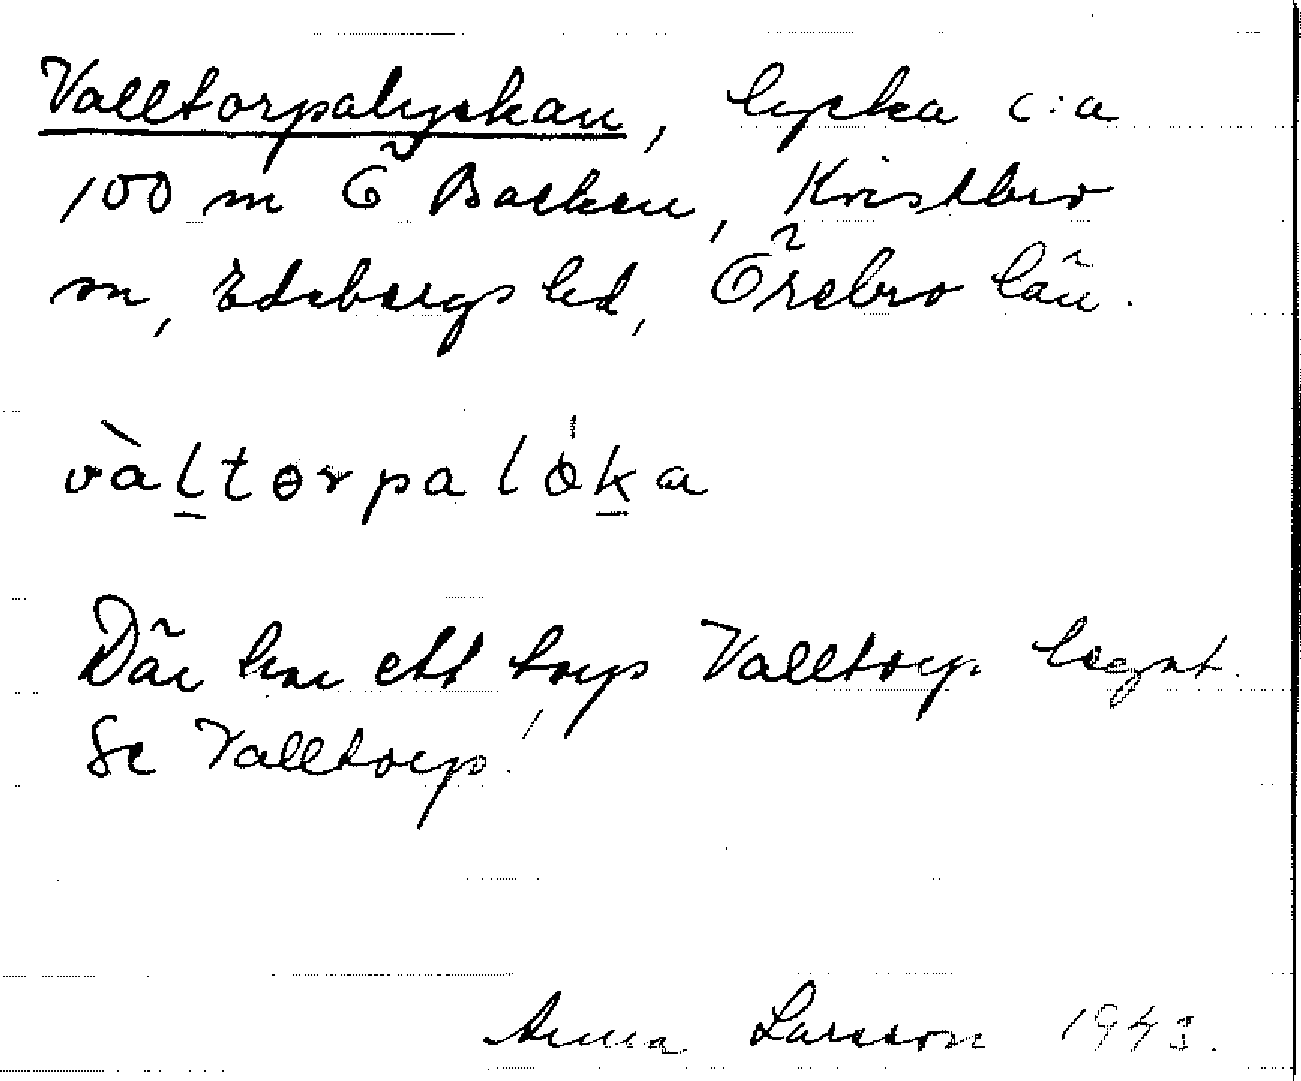 Valltorpalyckan, lycka c:a
100 m Ö Backen, Kristbro
m, Edsbergs hd, Örebro län.
vàltɵrpalöka
Där har ett torp Valltorp legat.
Se Valltorp!
Anna Larsson 1943.